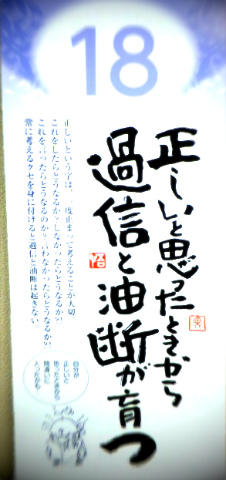 18
正しいと思ったときから
過信と油断が育つ
正しいという字は、一度止まって考えることが大切
これをしたらどうなるか?しなかったらどうなるか?
これを言ったらどうなるのか?言わなかったらどうなるか?
常に考えるクセを身に付けると過信と油断は起きない
自分が
正しいと
思ったときから
間違いに
入ったかも